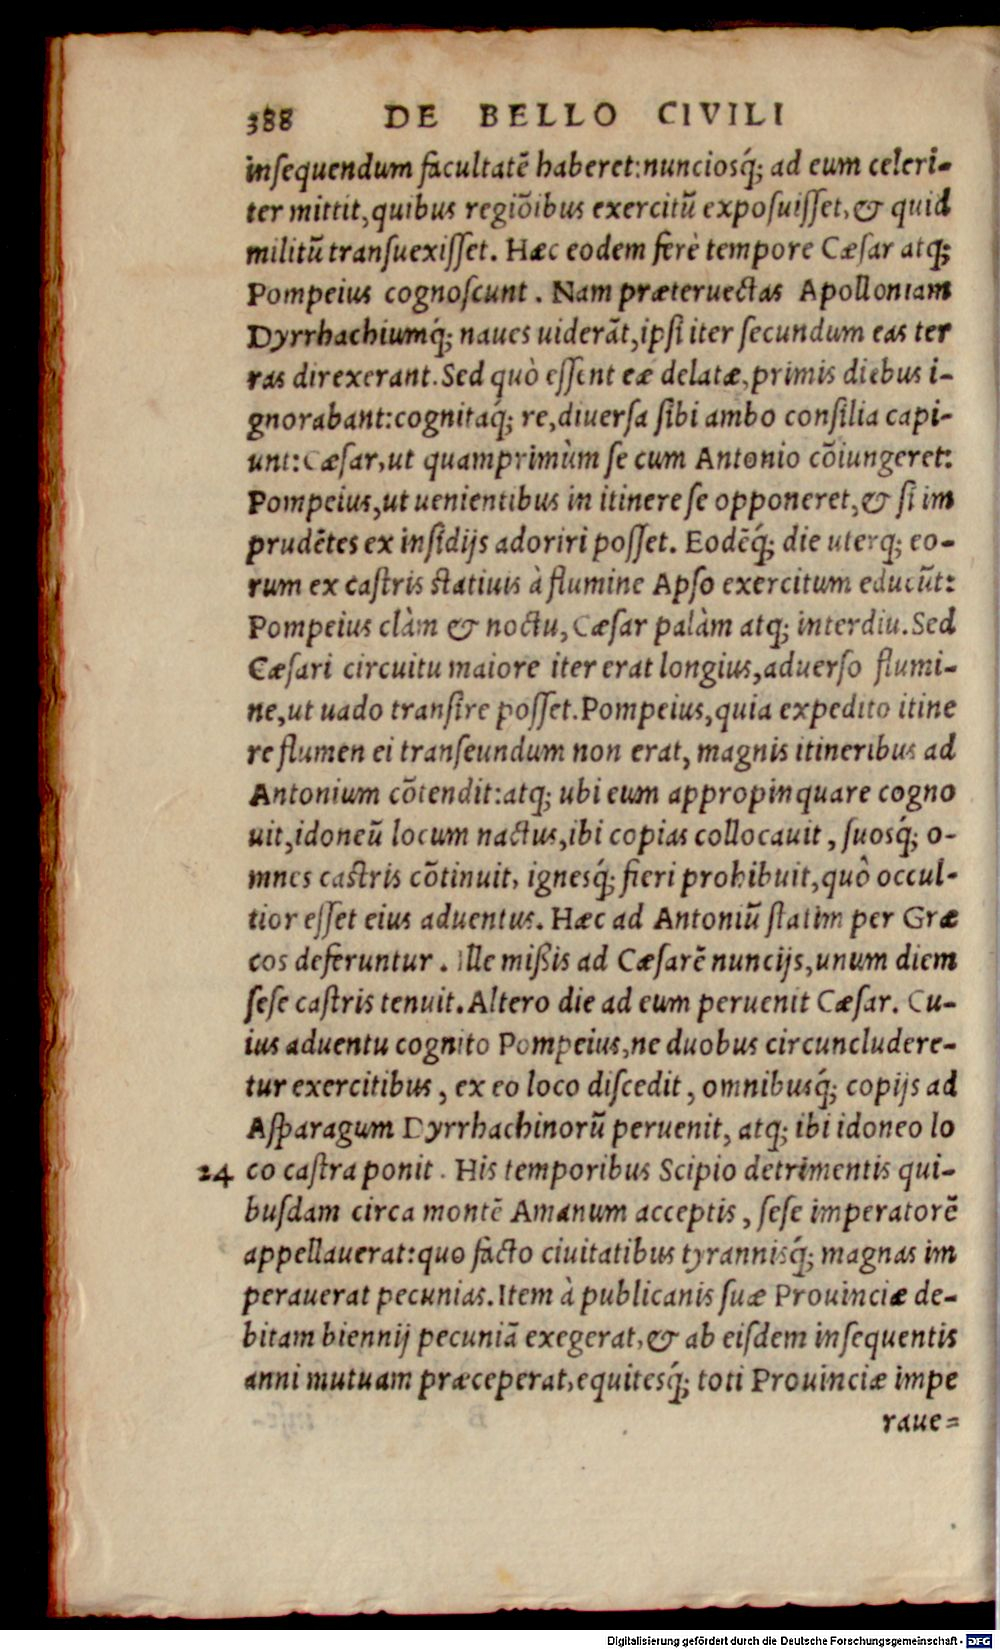 388 DE BELLO CIVILI
inſequendum facultatẽ haberet:nunciosq́; ad eum celeri-
ter mittit,quibus regiõibus exercitũ expoſuiſſet,& quid
militũ tranſuexiſſet. Hæc eodem ferè tempore Cæſar atq;
Pompeius cognoſcunt. Nam præteruectas Apolloniam
Dyrrhachiumq́; naues uiderãt,ipſi iter ſecundum eas ter
ras direxerant.Sed quò eſſent eæ delatæ,primis diebus i-
gnorabant:cognitaq́; re,diuerſa ſibi ambo conſilia capi-
unt:Cæſar,ut quamprimùm ſe cum Antonio cõiungeret:
Pompeius,ut uenientibus in itinere ſe opponeret,& ſi im
prudẽtes ex inſidijs adoriri poſſet. Eodẽq́; die uterq; eo-
rum ex caſtris ſtatiuis à flumine Apſo exercitum educũt:
Pompeius clàm & noctu,Cæſar palàm atq; interdiu.Sed
Cæſari circuitu maiore iter erat longius,aduerſo flumi-
ne,ut uado tranſire poſſet.Pompeius,quia expedito itine
re flumen ei tranſeundum non erat, magnis itineribus ad
Antonium cõtendit:atq; ubi eum appropinquare cogno
uit,idoneũ locum nactus,ibi copias collocauit, ſuosq́; o-
mnes caſtris cõtinuit, ignesq́; fieri prohibuit,quò occul-
tior eſſet eius aduentus. Hæc ad Antoniũ ſtatim per Græ
cos deferuntur. Ille mißis ad Cæſarẽ nuncijs,unum diem
ſeſe caſtris tenuit.Altero die ad eum peruenit Cæſar. Cu-
ius aduentu cognito Pompeius,ne duobus circuncludere-
tur exercitibus, ex eo loco diſcedit, omnibusq́; copijs ad
Aſparagum Dyrrhachinorũ peruenit, atq; ibi idoneo lo
24 co caſtra ponit. His temporibus Scipio detrimentis qui-
buſdam circa montẽ Amanum acceptis, ſeſe imperatorẽ
appellauerat:quo facto ciuitatibus tyrannisq́; magnas im
perauerat pecunias.Item à publicanis ſuæ Prouinciæ de-
bitam biennij pecuniã exegerat,& ab eiſdem inſequentis
anni mutuam præceperat,equitesq́; toti Prouinciæ impe
raue=
Digitalisierung gefördert durch die Deutsche Forschungsgemeinschaft - DFG